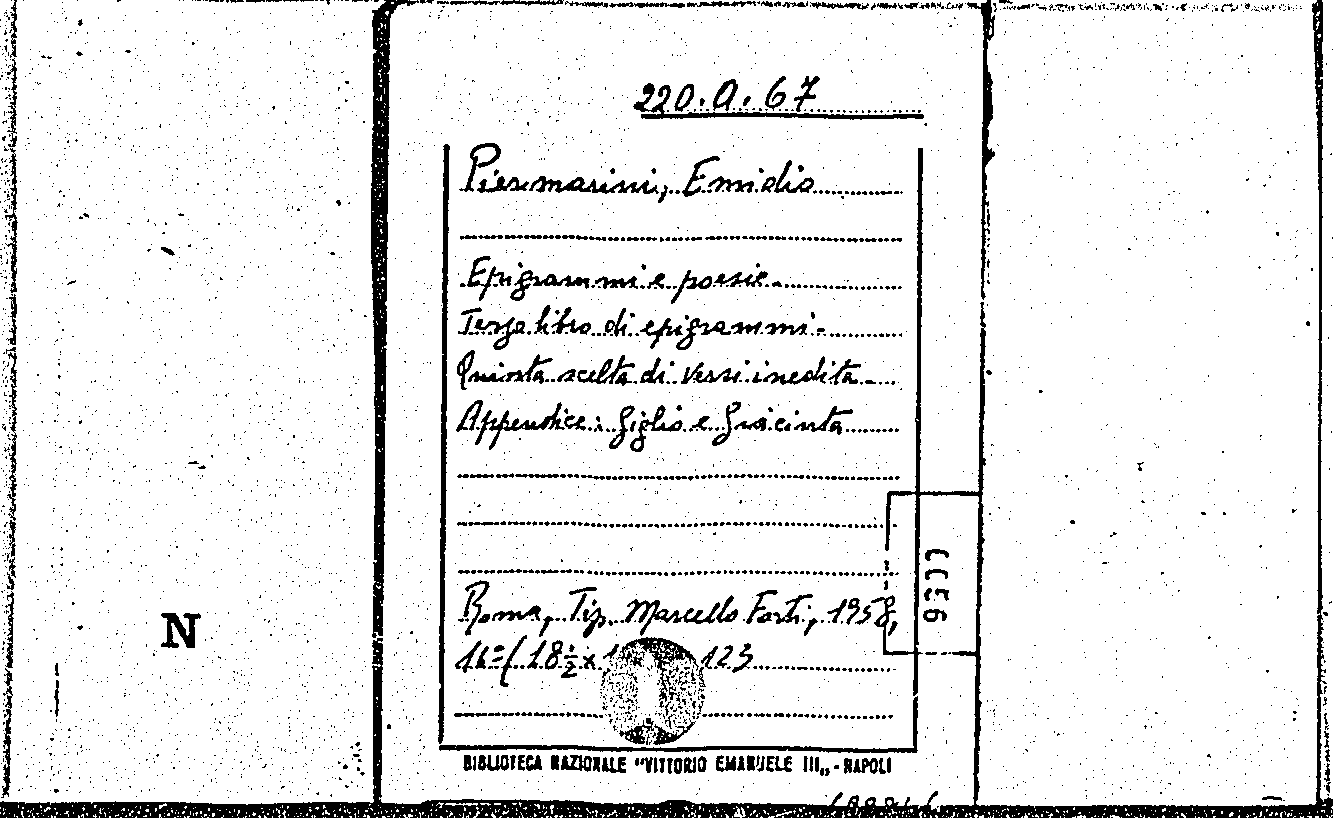 220.A.67
Piermarini, Emidio
Epigrammi e poesie.
Terzo libro di epigrammi.
Quinta scelta di versi inedita.
Appendice: Giglio e Giacinta
Roma, Tip. Marcello Forti, 1958,
16º ( 18 ½ x 123
N
BIBLIOTECA NAZIONALE "VITTORIO EMANUELE III„ - NAPOLI